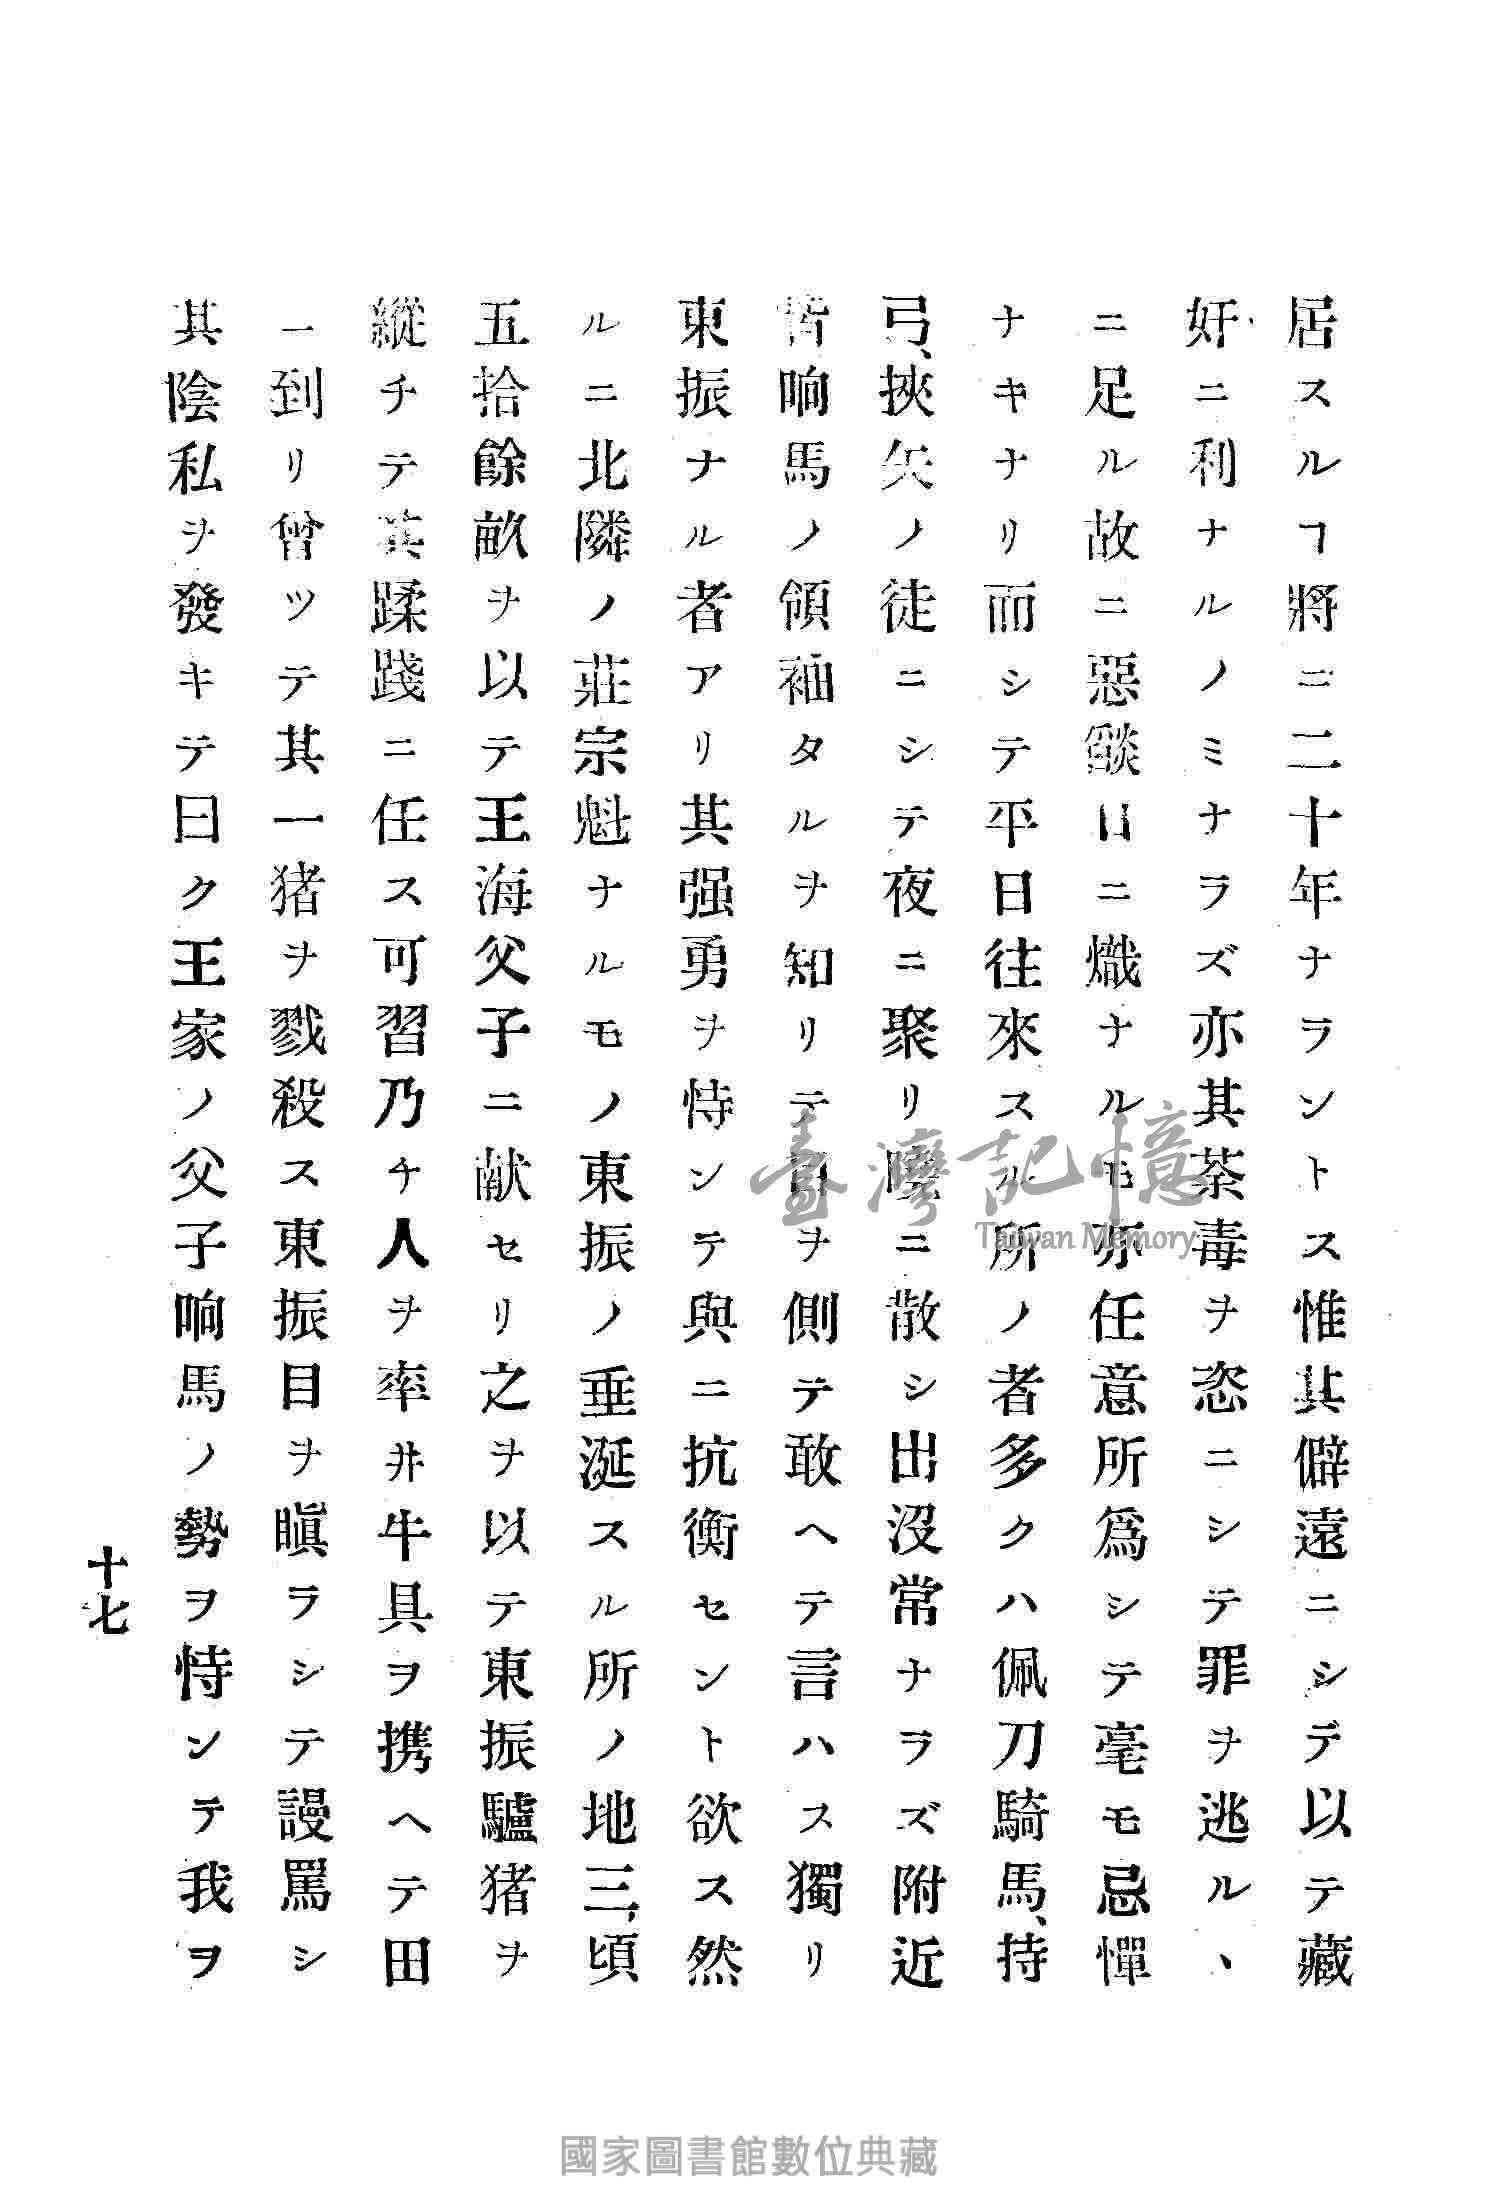 居スルヿ將ニ二十年ナラントス惟其僻遠ニシデ以テ藏
奸ニ利ナルノミナラズ亦其荼毒ヲ恣ニシテ罪ヲ逃ルヽ
ニ足ル故ニ惡燄日ニ熾ナルモ亦任意所爲シテ毫モ忌憚
ナキナリ而シテ平日往來スル所ノ者多クハ佩刀騎馬、持
弓、挾矢ノ徒ニシテ夜ニ聚リ曉ニ散シ出沒常ナラズ附近
皆响馬ノ領袖タルヲ知リテ目ヲ側テ敢ヘテ言ハス獨リ
東振ナル者アリ其强勇ヲ恃ンテ與ニ抗衡セント欲ス然
ルニ北隣ノ莊宗魁ナルモノ東振ノ垂涎スル所ノ地三、頃
五拾餘畝ヲ以テ王海父子ニ献セリ之ヲ以テ東振驢猪ヲ
縱チテ其蹂踐ニ任ス可習乃チ人ヲ率井牛具ヲ携ヘテ田
ニ到リ曾ツテ其一猪ヲ戮殺ス東振目ヲ瞋ラシテ謾罵シ
其陰私ヲ發キテ曰ク王家ノ父子响馬ノ勢ヲ恃ンテ我ヲ
十七
臺灣記憶
Taiwan Memory
國家圖書館數位典藏